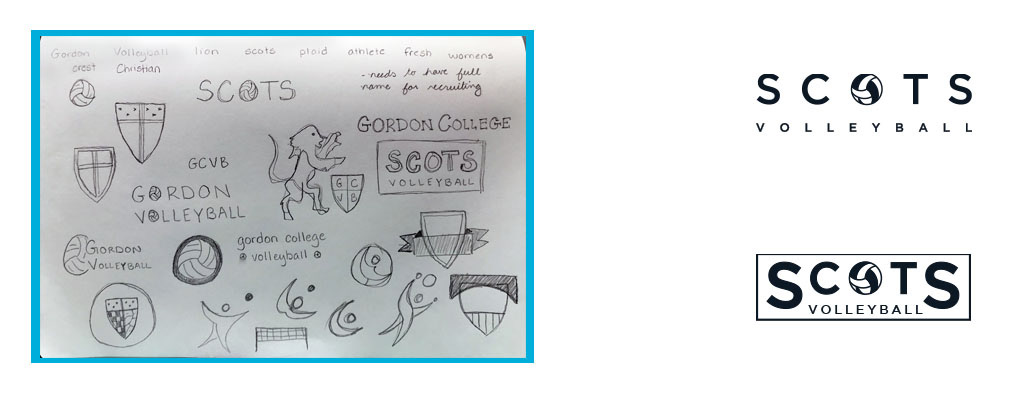 Gordon Volleyball lion scots plaid athlete fresh womens
crest Christian
- needs to have full
name for recruiting
SCOTS
GORDON COLLEGE
SCOTS
VOLLEYBALL
GCVB
G C
V B
GORDON
VOLLEYBALL
gordon college
volleyball
GORDON
VOLLEYBALL
SCOTS
VOLLEYBALL
SCOTS
VOLLEYBALL